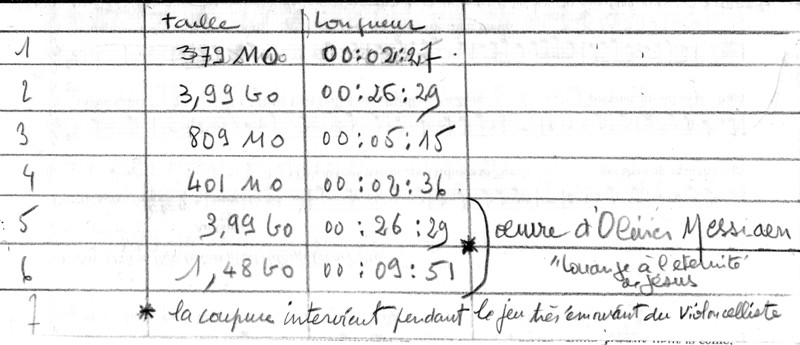 taille Longueur
1 379 MO 00:02:27
2 3,99 Go 00:26:29
3 809 MO 00:05:15
4 401 MO 00:02:36
5 3,99 Go 00:26:29 oeuvre d'Olivier Messiaen
6 1,48 Go 00:09:51 * "Louange à l'éternité
de Jésus
7 * la coupure intervient pendant le jeu très émouvant du violoncelliste